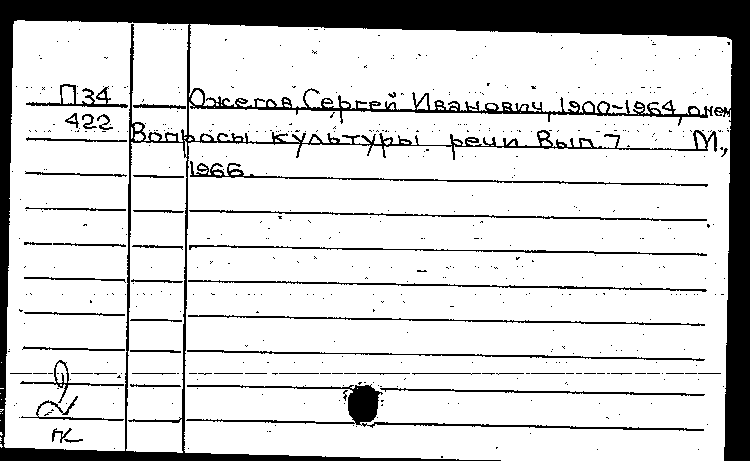 П34 Ожегов, Сергей Иванович, 1900-1964, о нем
422 Вопросы культуры речи Вып. 7 М.,
1966.
2